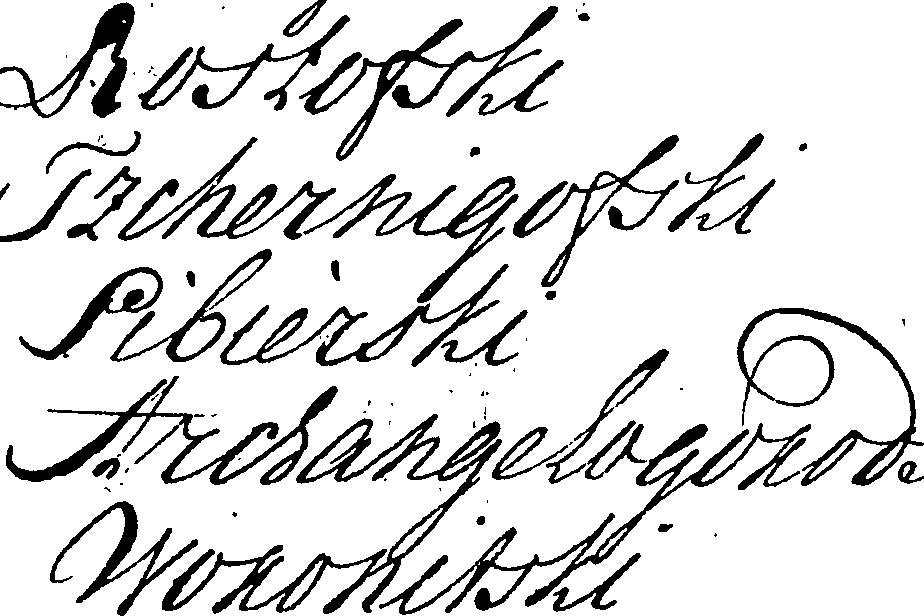 Rostofski
Tzchernigofski
Sibierski
Archangelogorod
Woronitski